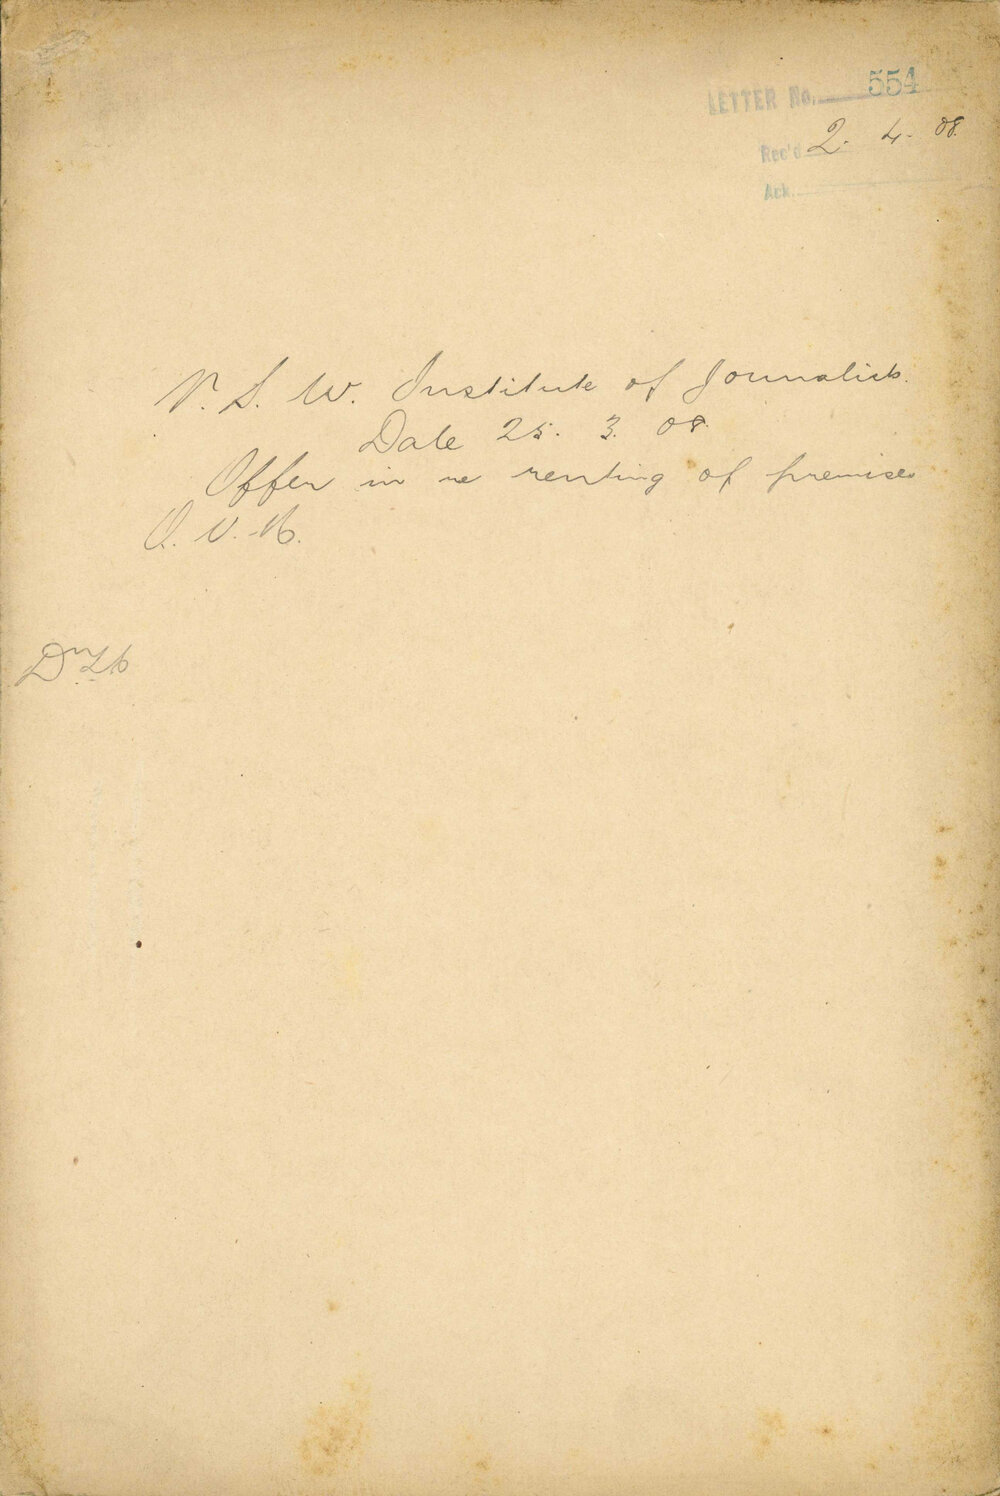 LETTER No. 554
Rec'd 2. 4. 08.
Ack.
N. S. W. Institute of Journalists.
Date 25. 3. 08
Offer in re renting of premises
Q. V. M.